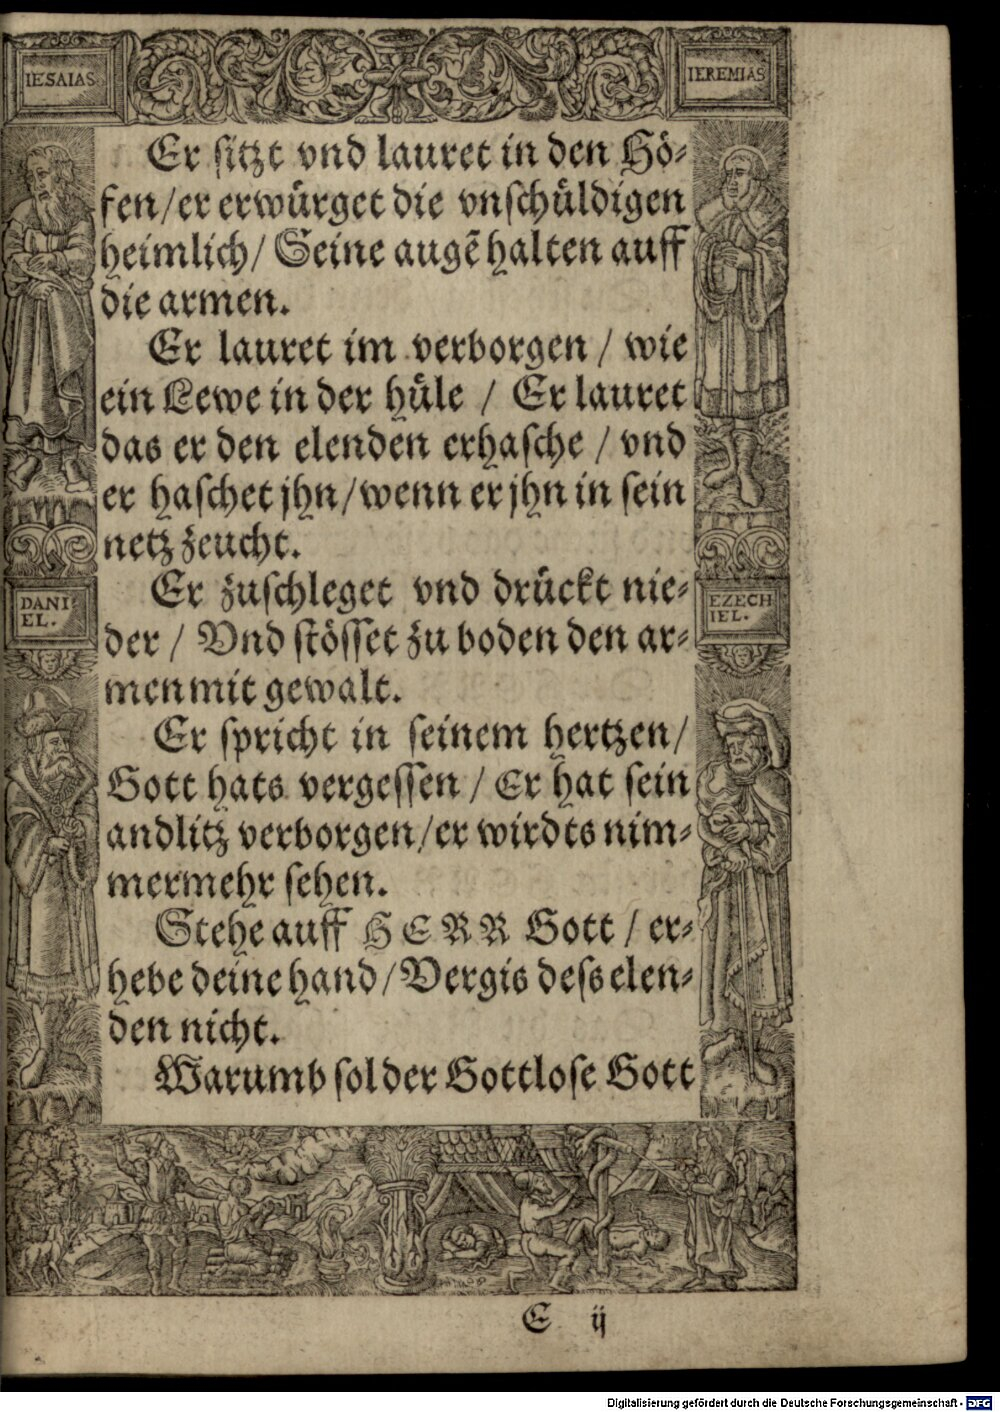 IESAIAS.
IEREMIAS
Er ſitzt vnd lauret in den Hö⸗
fen/er erwürget die vnſchüldigen
heimlich/ Seine augẽ halten auff
die armen.
Er lauret im verborgen / wie
ein Lewe in der hüle / Er lauret
das er den elenden erhaſche / vnd
er haſchet jhn/wenn er jhn in ſein
netz zeucht.
Er zuſchleget vnd drückt nie⸗
der / Vnd ſtöſſet zu boden den ar⸗
men mit gewalt.
Er ſpricht in ſeinem hertzen/
Gott hats vergeſſen / Er hat ſein
andlitz verborgen/er wirdts nim⸗
mermehr ſehen.
Stehe auff HERR Gott / er⸗
hebe deine hand/Vergis deſs elen⸗
den nicht.
Warumb ſol der Gottloſe Gott
DANI
EL.
EZECH
IEL.
E ij
Digitalisierung gefördert durch die Deutsche Forschungsgemeinschaft - DFG